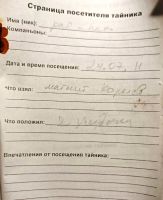 Страница посетителя тайника
Имя (ник):
Компаньоны:
Дата и время посещения: 24.07.11
Что взял: магнит
Что положил:
Впечатления от посещения тайника: